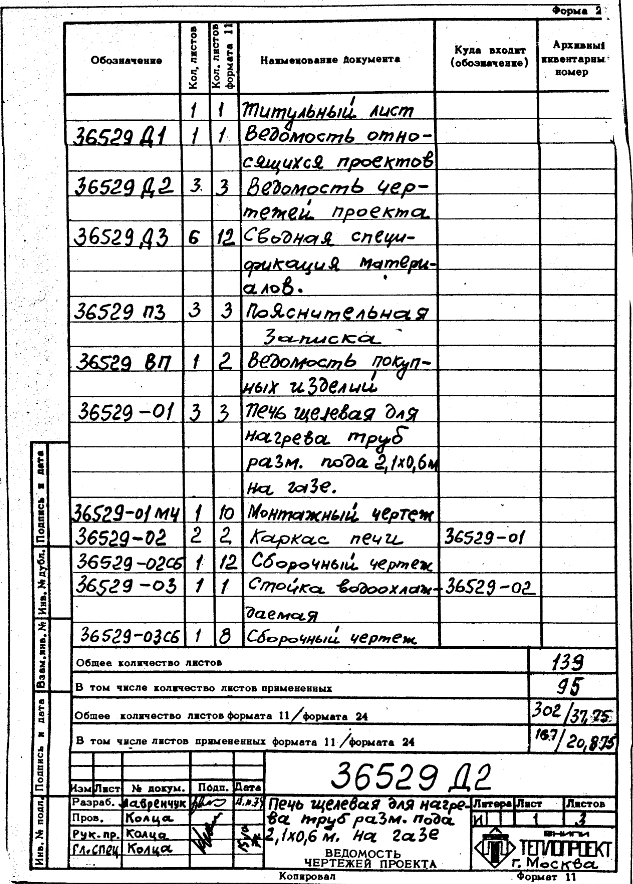 Форма 2
Обозначение Кол. листов Кол. листов формата 11 Наименование документа Куда входит (обозначение) Архивный инвентарный номер
1 1 Титульный лист
36529 Д1 1 1 Ведомость отно-
сящихся проектов
36529 Д2 3 3 Ведомость чер-
тежей проекта
36529 Д3 6 12 Сводная специ-
фикация матери-
алов.
36529 ПЗ 3 3 Пояснительная
Записка
36529 ВП 1 2 Ведомость покуп-
ных изделий
36529-01 3 3 Печь щелевая для
нагрева труб
разм. пода 2,1х0,6м
на газе.
36529-01МЧ 1 10 Монтажный чертеж
36529-02 2 2 Каркас печи 36529-01
36529-02СБ 1 12 Сборочный чертеж
36529-03 1 1 Стойка водоохлаж- 36529-02
даемая
36529-03СБ 1 8 Сборочный чертеж
Общее количество листов 139
В том числе количество листов примененных 95
Общее количество листов формата 11/формата 24 302/37,75
В том числе листов примененных формата 11/формата 24 167/20,875
Инв. № подл. Подпись и дата Взам. инв. № Инв. № дубл. Подпись и дата
36529 Д2
Изм Лист № докум. Подп. Дата
Разраб. Лавренчук
Пров. Колца
Рук. пр. Колца
Гл. спец Колца
Печь щелевая для нагре-
ва труб разм. пода
2,1х0,6 м. на газе
ВЕДОМОСТЬ
ЧЕРТЕЖЕЙ ПРОЕКТА
Литера Лист Листов
И 1 3
ВНИПИ
ТЕПЛОПРОЕКТ
г. Москва
Копировал Формат 11